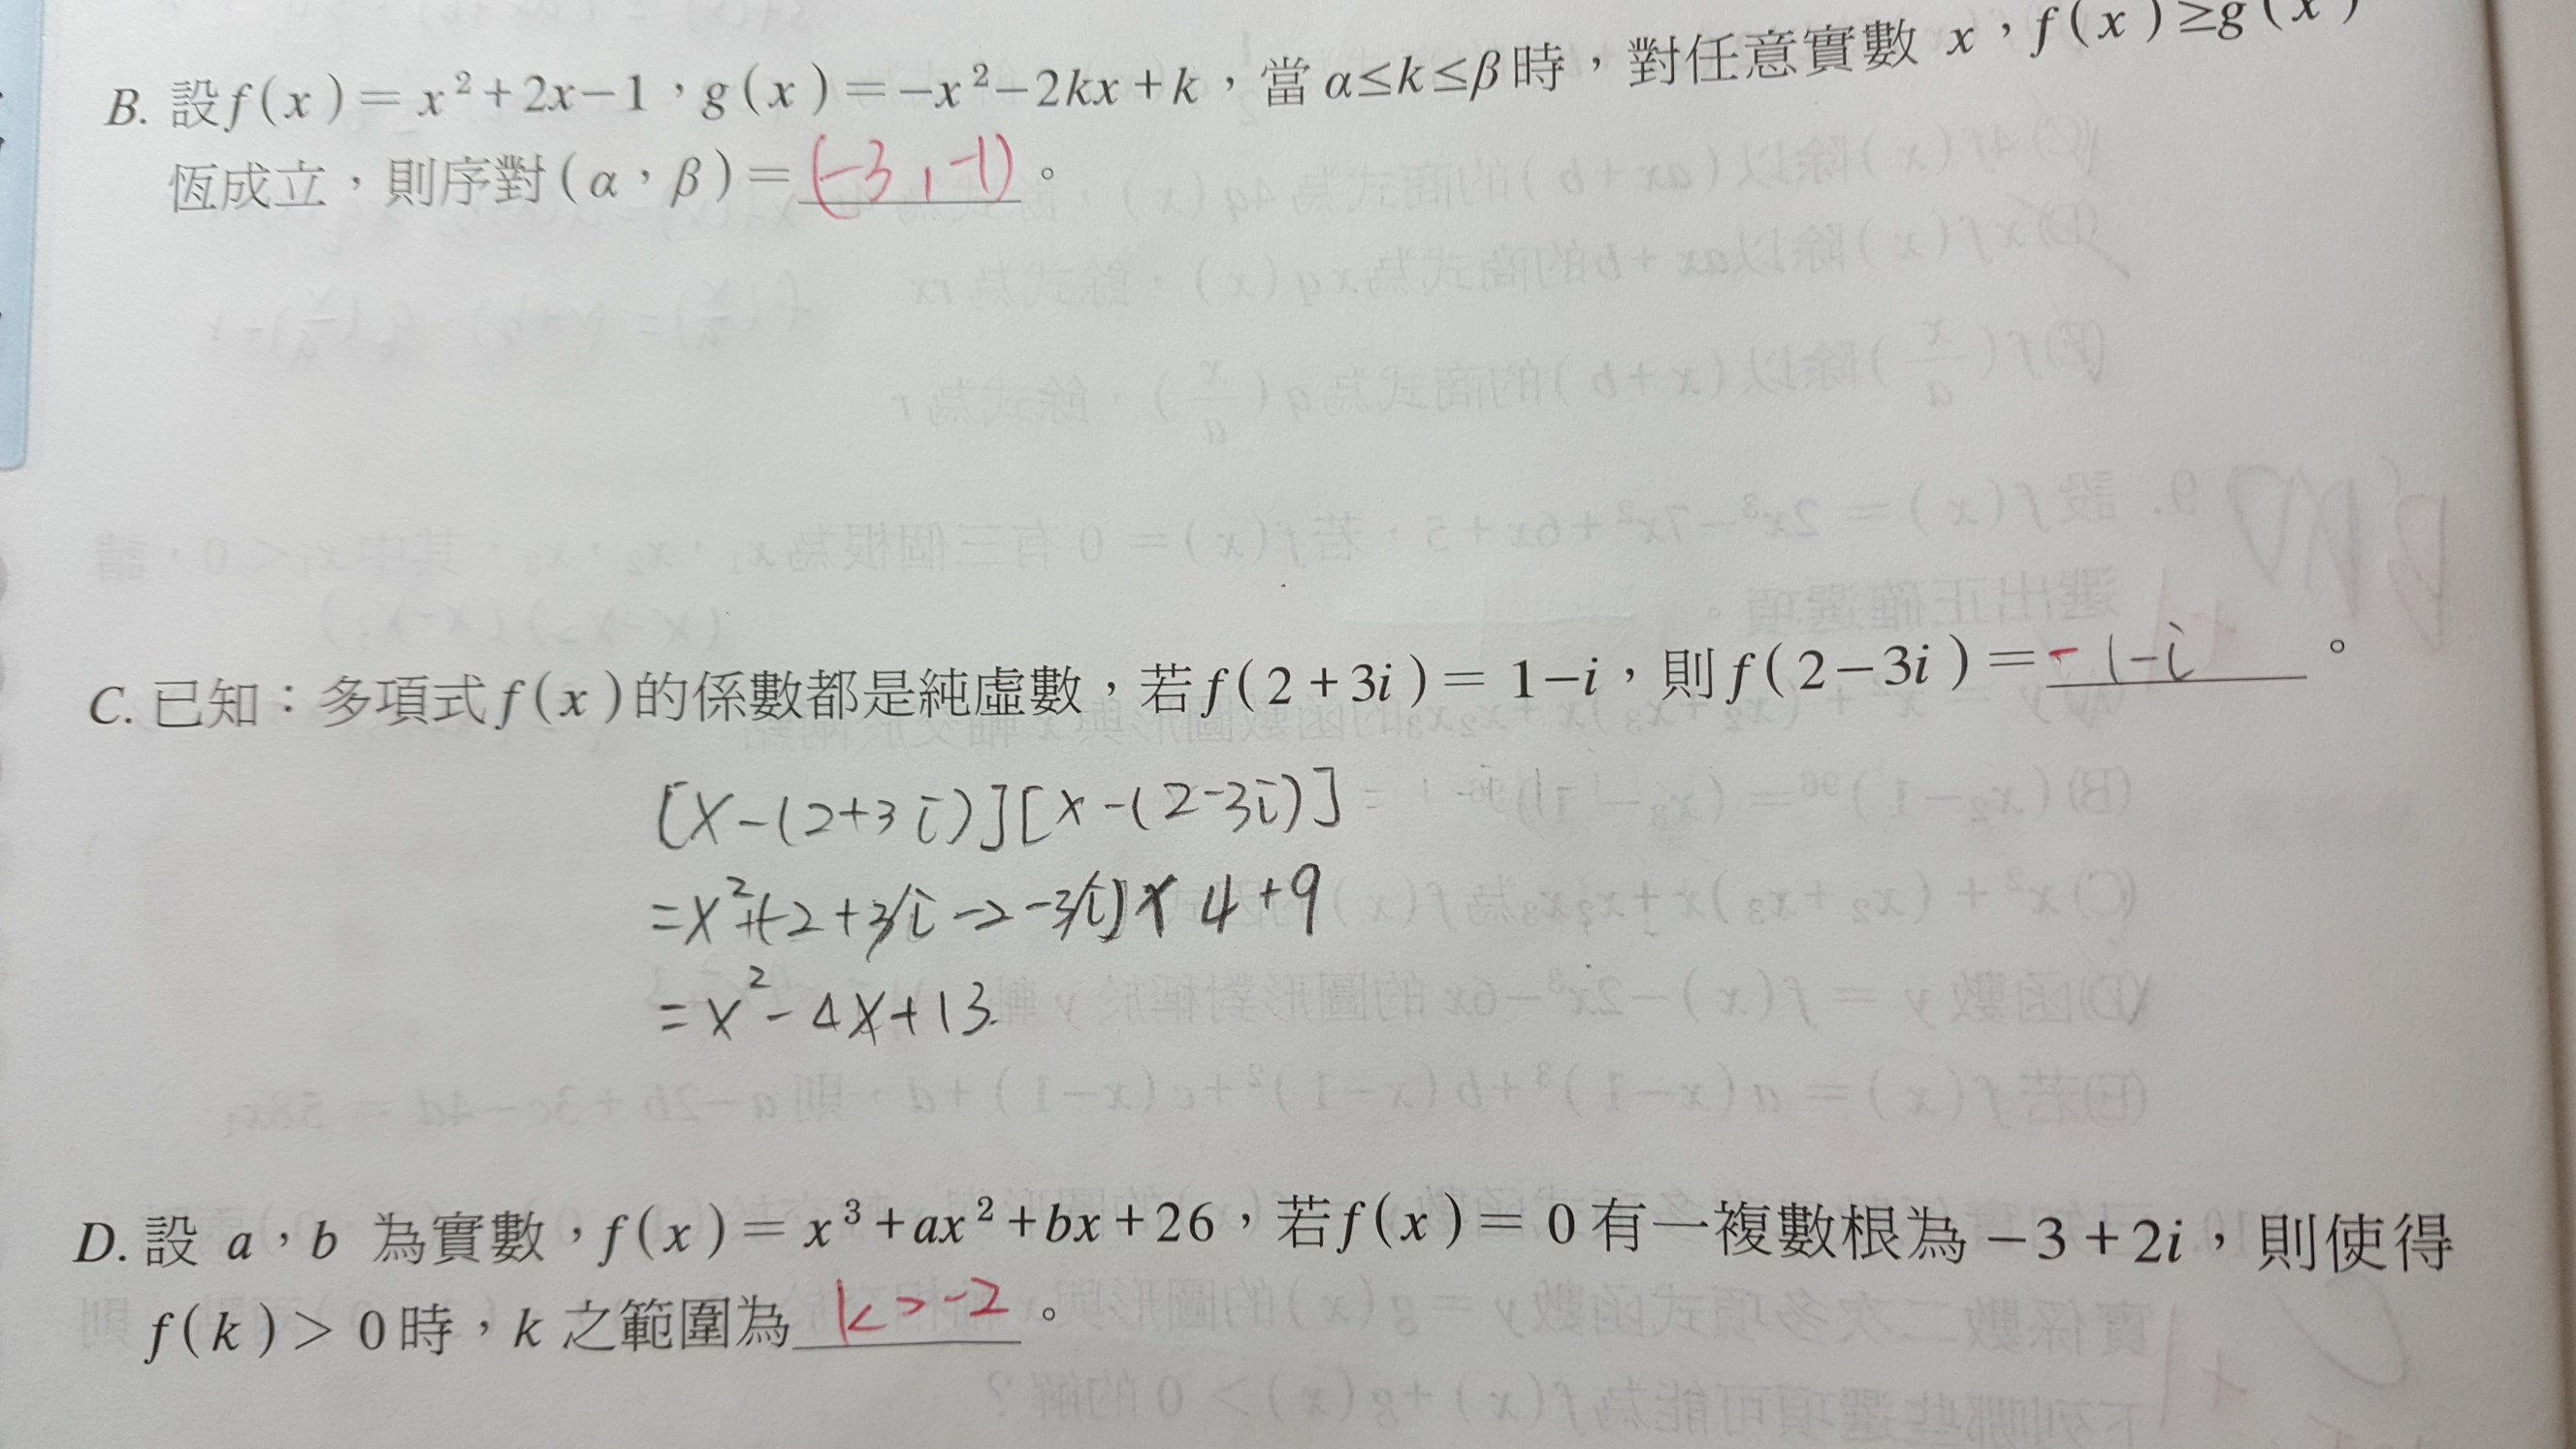 B. 設f(x)=x²+2x−1，g(x)=−x²−2kx+k，當α≤k≤β時，對任意實數 x，f(x)≥g(x)
恆成立，則序對(α，β)=(-3,-1)。
C. 已知：多項式f(x)的係數都是純虛數，若f(2+3i)=1−i，則f(2−3i)=-1-i。
[x-(2+3i)][x-(2-3i)]
=x²+(-2+3i-2-3i)x 4+9
=x²-4x+13.
D. 設 a，b 為實數，f(x)=x³+ax²+bx+26，若f(x)=0有一複數根為−3+2i，則使得
f(k)>0時，k之範圍為k>-2。